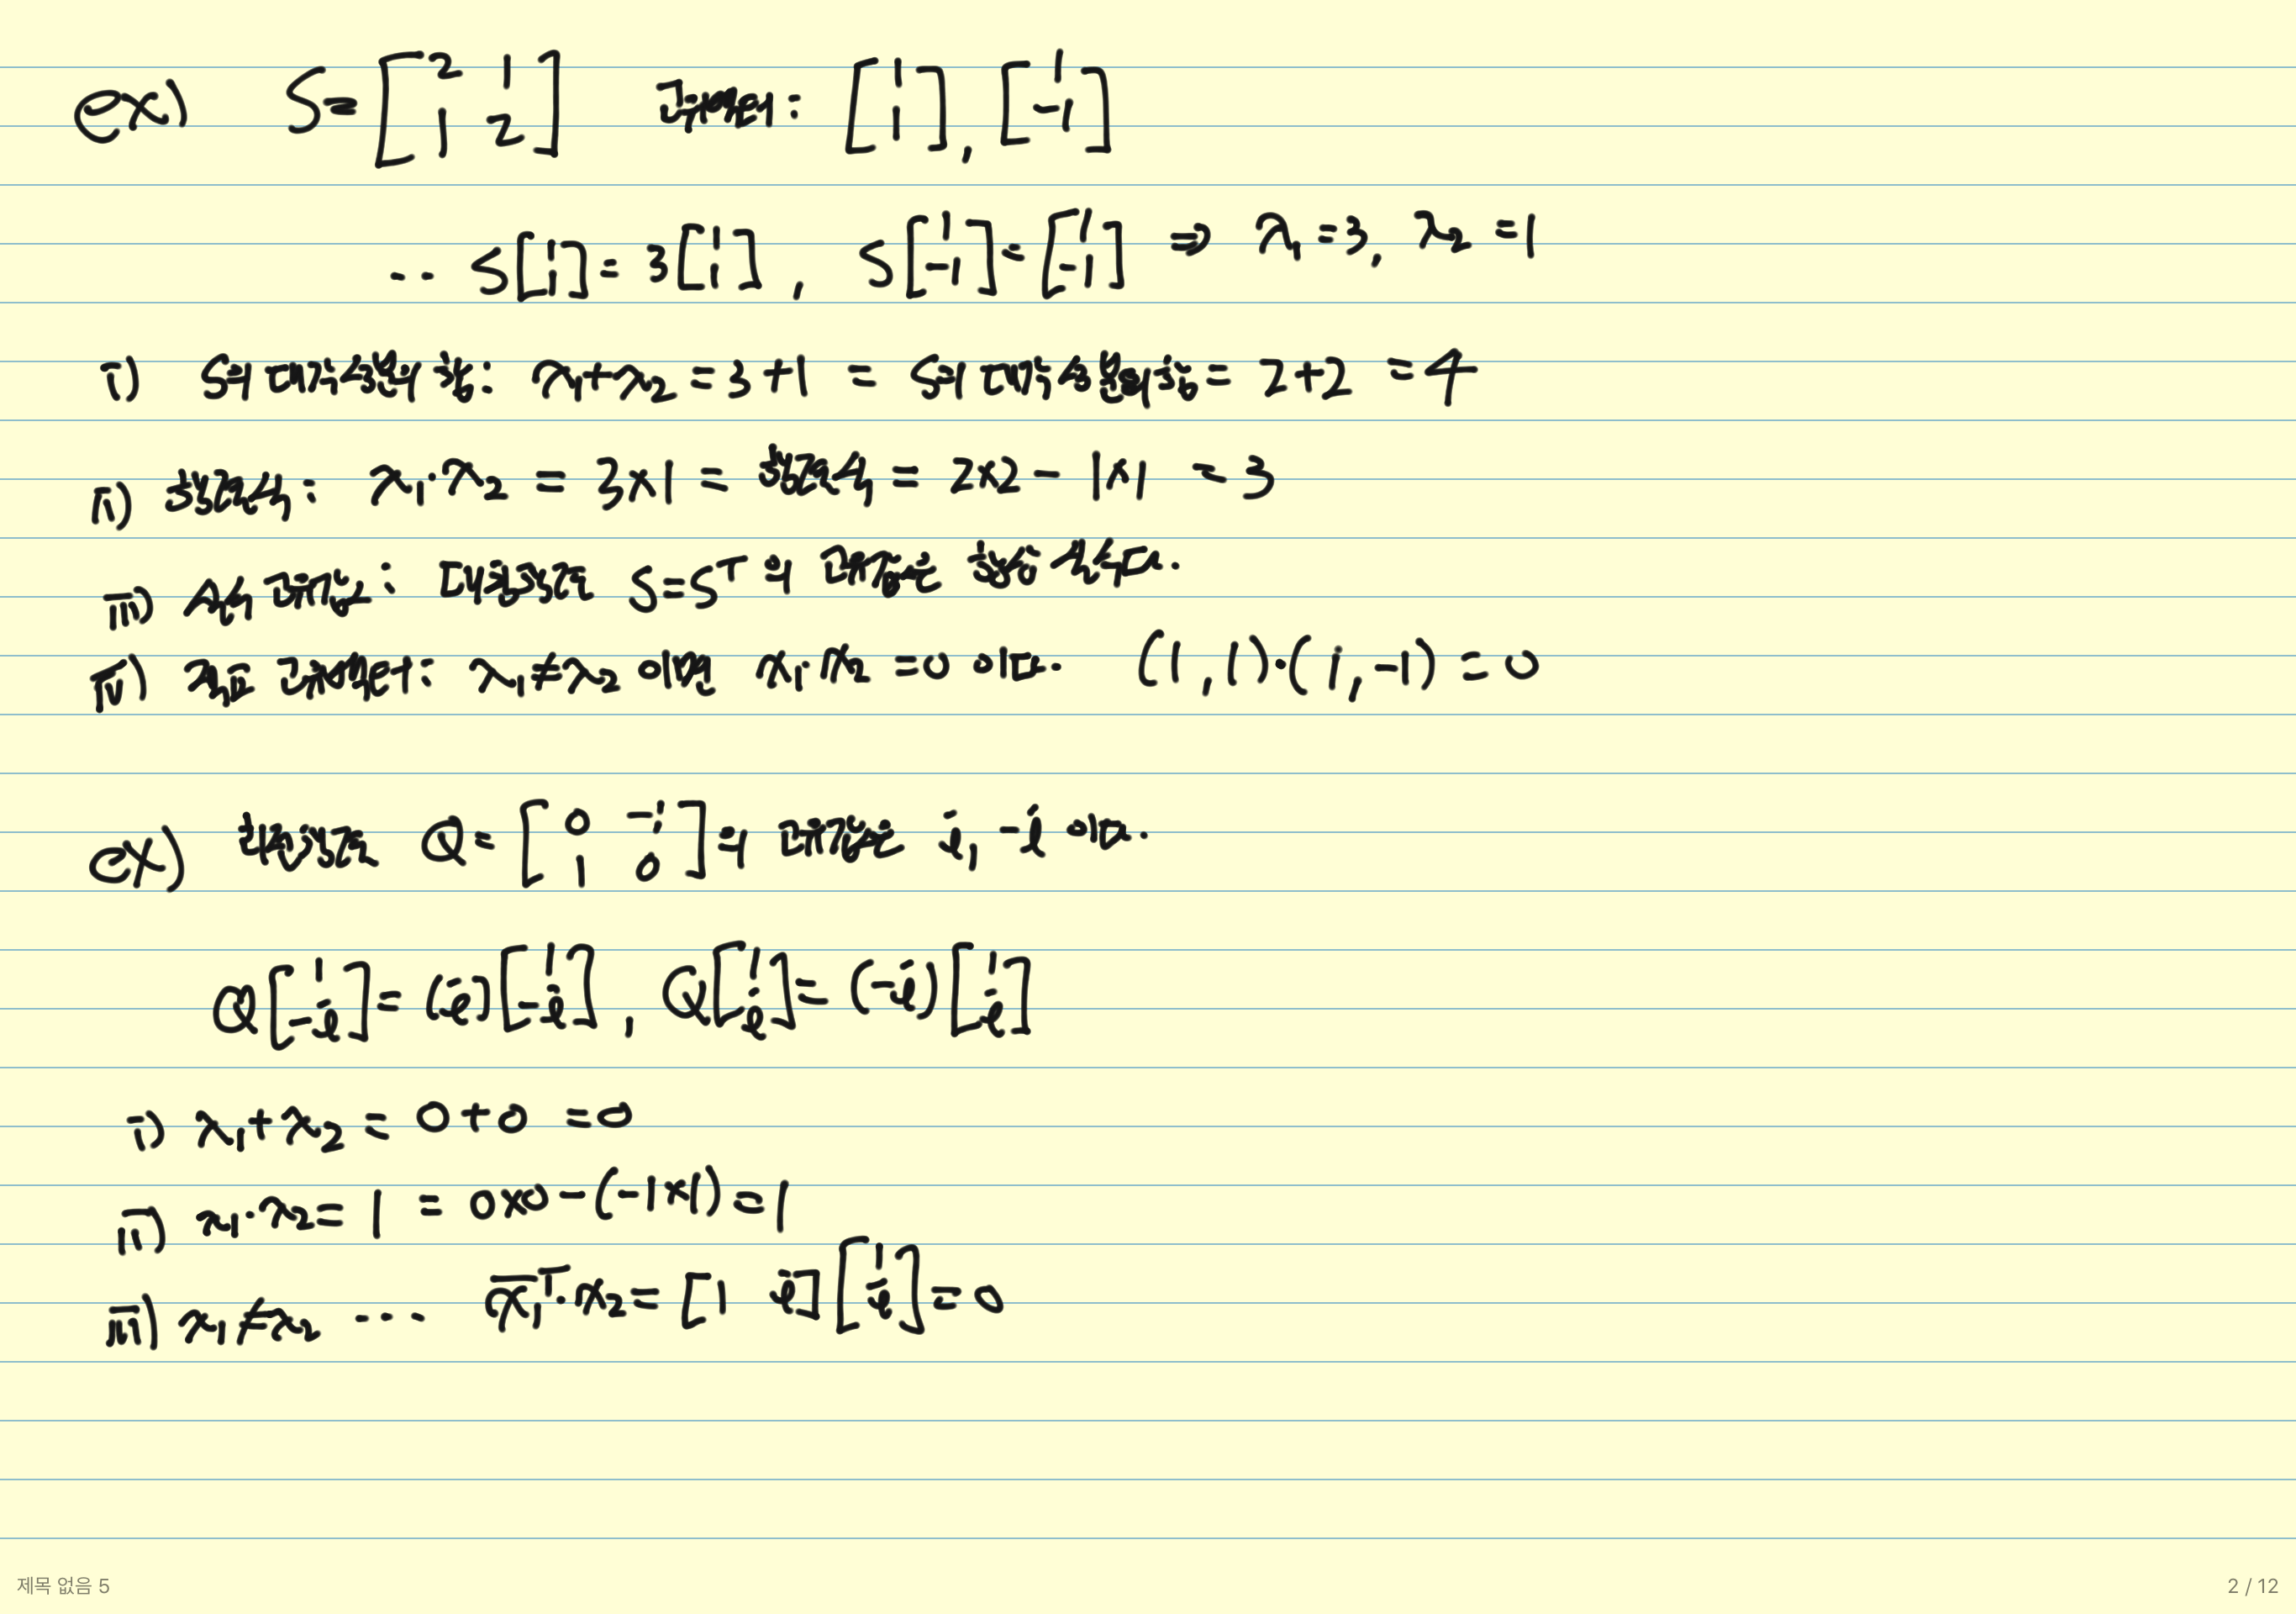 ex) S = [2 1; 1 2] 고유벡터: [1; 1], [1; -1]
·· S[1; 1] = 3[1; 1], S[1; -1] = [1; -1] ⇒ λ₁ = 3, λ₂ = 1
i) S의 대각성분의 합: λ₁+λ₂ = 3+1 = S의 대각성분의 합 = 2+2 = 4
ii) 행렬식: λ₁·λ₂ = 3×1 = 행렬식 = 2×2 - 1×1 = 3
iii) 실수 고윳값: 대칭행렬 S=Sᵀ의 고윳값은 항상 실수다.
iv) 직교 고유벡터: λ₁≠λ₂ 이면 x₁·x₂ = 0 이다. (1, 1)·(1, -1) = 0
ex) 회전행렬 Q = [0 -1; 1 0]의 고윳값은 i, -i 이다.
Q[1; -i] = (i)[1; -i], Q[1; i] = (-i)[1; i]
i) λ₁+λ₂ = 0+0 = 0
ii) λ₁·λ₂ = 1 = 0×0-(-1×1) = 1
iii) λ₁≠λ₂ ··· x̄₁ᵀ·x₂ = [1 i][1; i] = 0
제목 없음 5
2 / 12